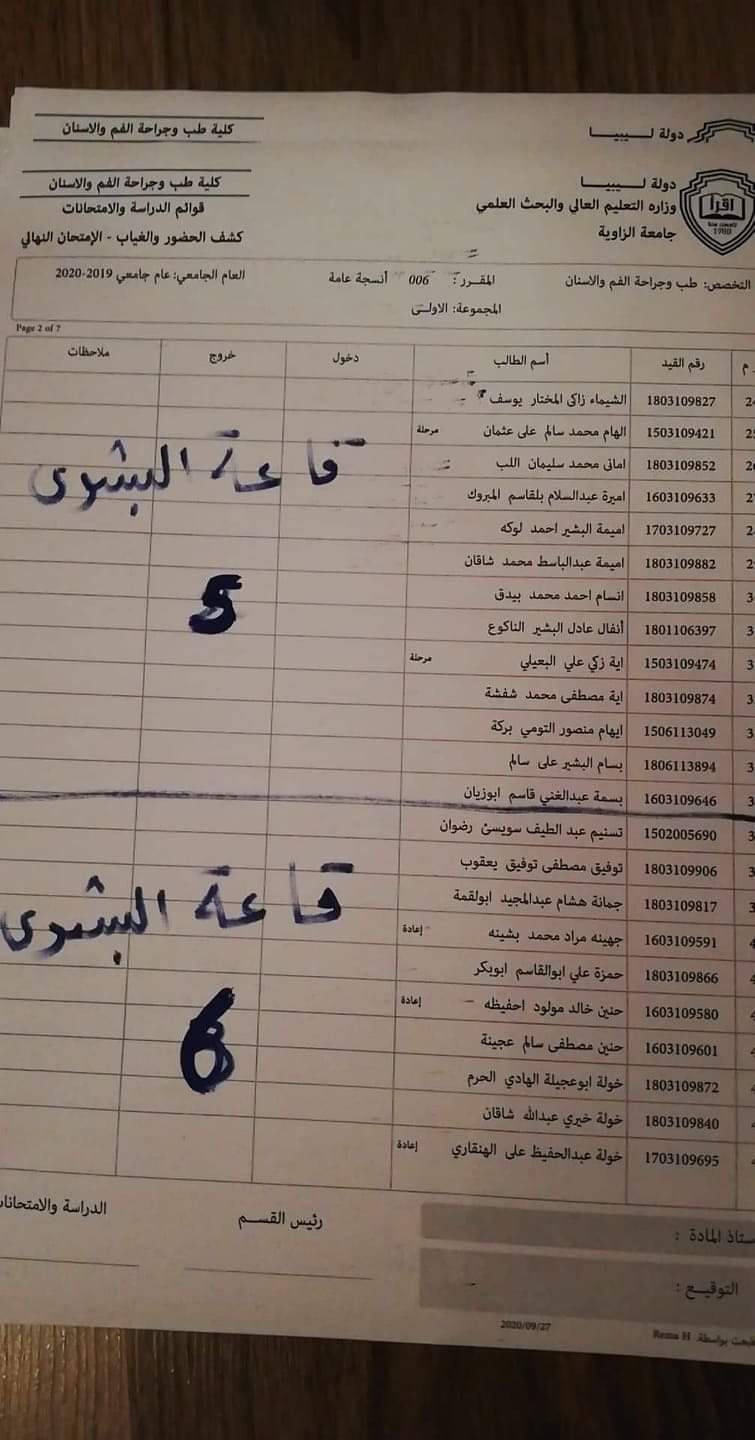 دولة لـــيبيـــا
كلية طب وجراحة الفم والاسنان
دولة لـــيبيـــا
وزاره التعليم العالي والبحث العلمي
جامعة الزاوية
اقرأ
1988
كلية طب وجراحة الفم والاسنان
قوائم الدراسة والامتحانات
كشف الحضور والغياب - الإمتحان النهائي
التخصص: طب وجراحة الفم والاسنان المقـرر: 006 أنسجة عامة العام الجامعي: عام جامعي 2019-2020
المجموعة: الاولـى
Page 2 of 7
م رقم القيد أسم الطالب دخول خروج ملاحظات
1803109827 الشيماء زاكى المختار يوسف
1503109421 الهام محمد سالم على عثمان مرحلة
1803109852 امانى محمد سليمان اللب
1603109633 اميرة عبدالسلام بلقاسم المبروك
1703109727 اميمة البشير احمد لوكه
1803109882 اميمة عبدالباسط محمد شاقان
1803109858 انسام احمد محمد بيدق
1801106397 أنفال عادل البشير الناكوع
1503109474 اية زكي علي البعيلي مرحلة
1803109874 اية مصطفى محمد شفشة
1506113049 ايهام منصور التومي بركة
1806113894 بسام البشير على سالم
1603109646 بسمة عبدالغني قاسم ابوزيان
قاعة البشوى
5
1502005690 تسنيم عبد الطيف سويسئ رضوان
1803109906 توفيق مصطفى توفيق يعقوب
1803109817 جمانة هشام عبدالمجيد ابولقمة
1603109591 جهينه مراد محمد بشينه إعادة
1803109866 حمزة علي ابوالقاسم ابوبكر
1603109580 حنين خالد مولود احفيظه إعادة
1603109601 حنين مصطفى سالم عجينة
1803109872 خولة ابوعجيلة الهادي الحرم
1803109840 خولة خيري عبدالله شاقان
1703109695 خولة عبدالحفيظ على الهنقاري إعادة
قاعة البشوى
6
ستاذ المادة : رئيس القســم الدراسة والامتحانات
التوقيـع :
طبعت بواسطة: Rema H 2020/09/27